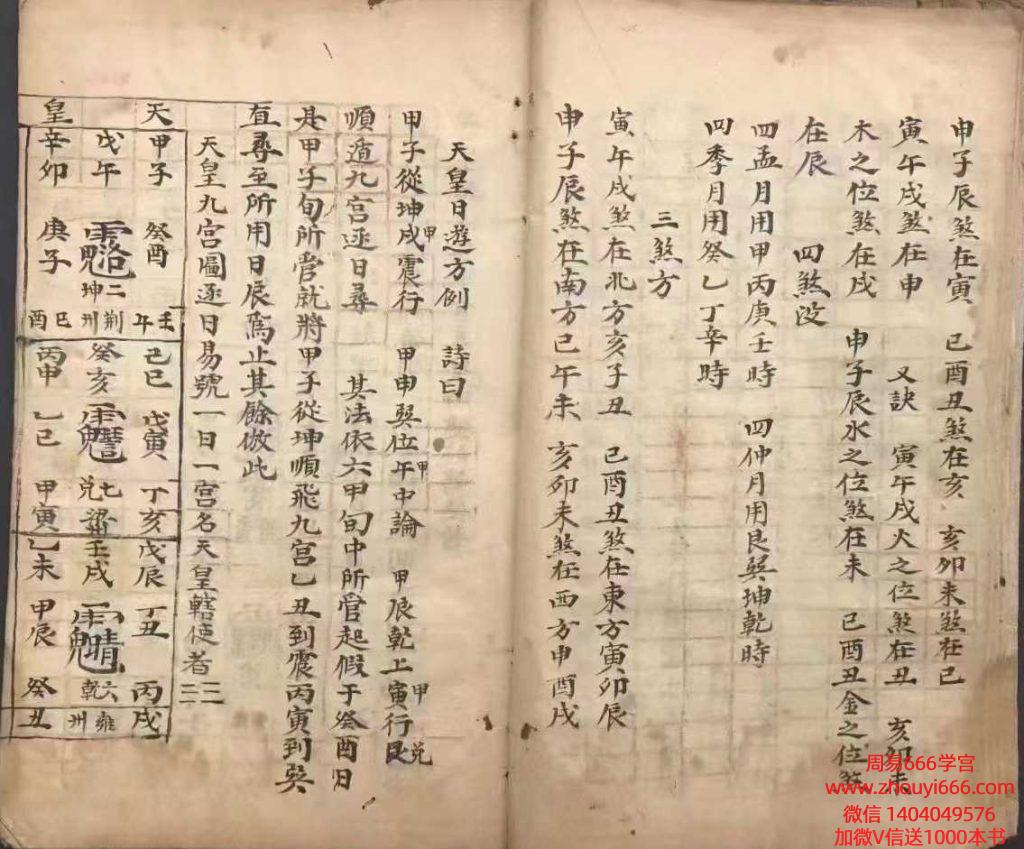 申子辰煞在寅　巳酉丑煞在亥　亥卯未煞在巳
寅午戌煞在申　又訣　寅午戌火之位煞在丑　亥卯未
木之位煞在戌　申子辰水之位煞在未　巳酉丑金之位煞
在辰　四煞没
四孟月用甲丙庚壬時　四仲月用艮巽坤乾時
四季月用癸乙丁辛時
三煞方
寅午戌煞在北方亥子丑　巳酉丑煞在東方寅卯辰
申子辰煞在南方巳午未　亥卯未煞在西方申酉戌
天皇日遊方例　詩曰
甲子從坤戌甲震行　甲申巽位午甲中論　甲辰乾上寅甲行艮兑
順遁九宫逐日尋　其法依六甲旬中所管起假于癸酉日
是甲子旬所管就將甲子從坤順飛九宫乙丑到震丙寅到巽
直尋至所用日辰為止其餘倣此
天皇九宫圖逐日易號一日一宫名天皇轄使者
天
甲子　癸酉
戊午
皇
辛卯　庚子
坤二
荆州
壬午
巳酉
己巳　戊寅　丁亥
癸亥
兑七
梁
丙申　乙巳　甲寅
戊辰　丁丑　丙戌
壬戌
乾六
雍州
乙未　甲辰　癸丑
周易666学宫
www.zhouyi666.com
微信 1404049576
加微V信送1000本书